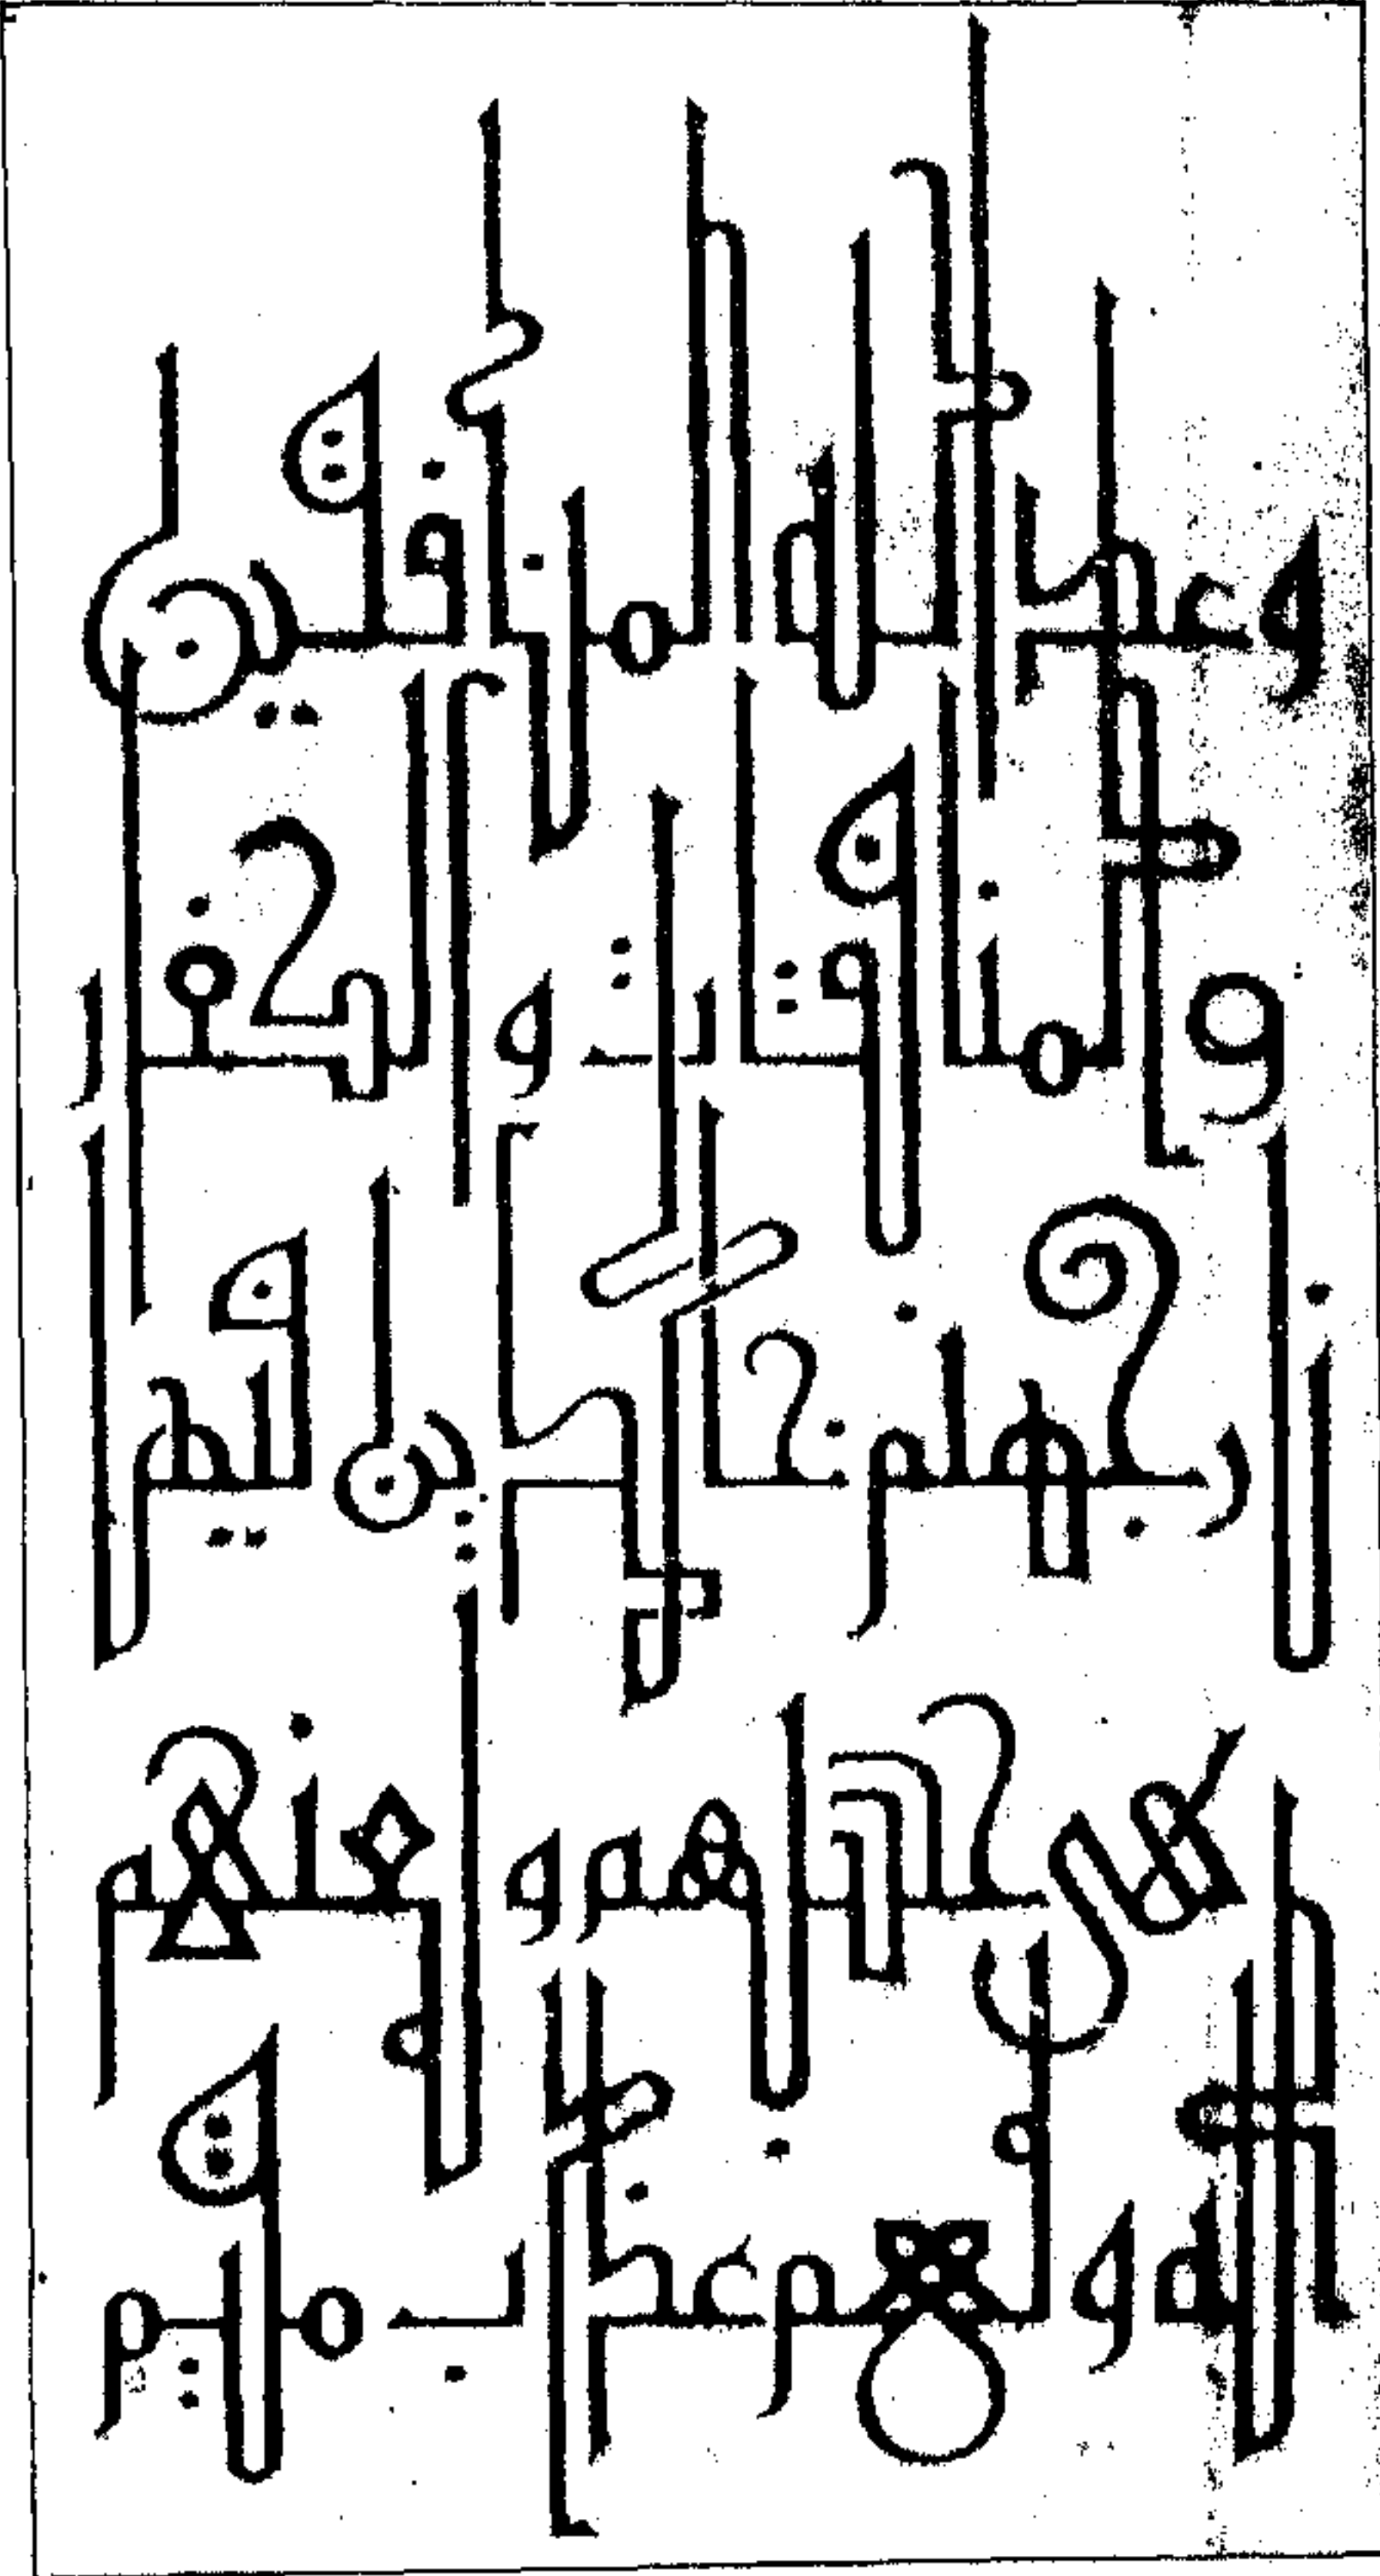 وعد الله المنافقين
والمنافقات والكفار
نار جهنم خالدين فيها
هي حسبهم ولعنهم
الله ولهم عذاب مقيم